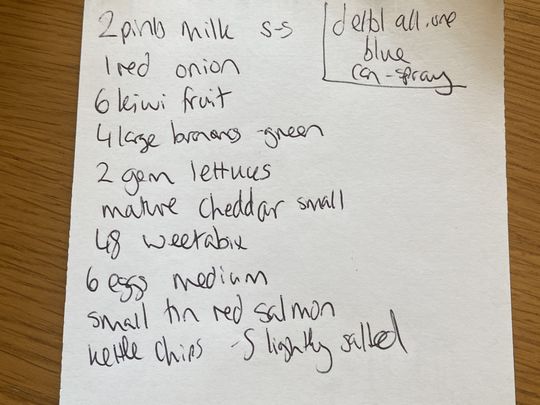 2 pints milk s-s
1 red onion
6 kiwi fruit
4 large bananas -green
2 gem lettuces
mature cheddar small
48 weetabix
6 eggs medium
small tin red salmon
kettle chips - slightly salted
all.one
blue
can - spray